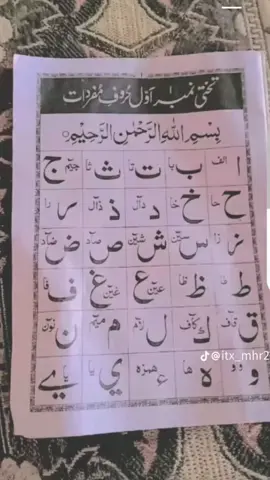 تختی نمبر ۱ اوّل حروفِ مفردات
بِسْمِ اللهِ الرَّحْمٰنِ الرَّحِيْمِ
ا الف ب با ت تا ث ثا ج جیم
ح حا خ خا د دال ذ ذال ر را
ز زا س سین ش شین ص صاد ض ضاد
ط طا ظ ظا ع عین غ غین ف فا
ق قاف ك کاف ل لام م میم ن نون
و واو ہ ھا ء ھمزہ ي یا ے یا
@itx_mhr2